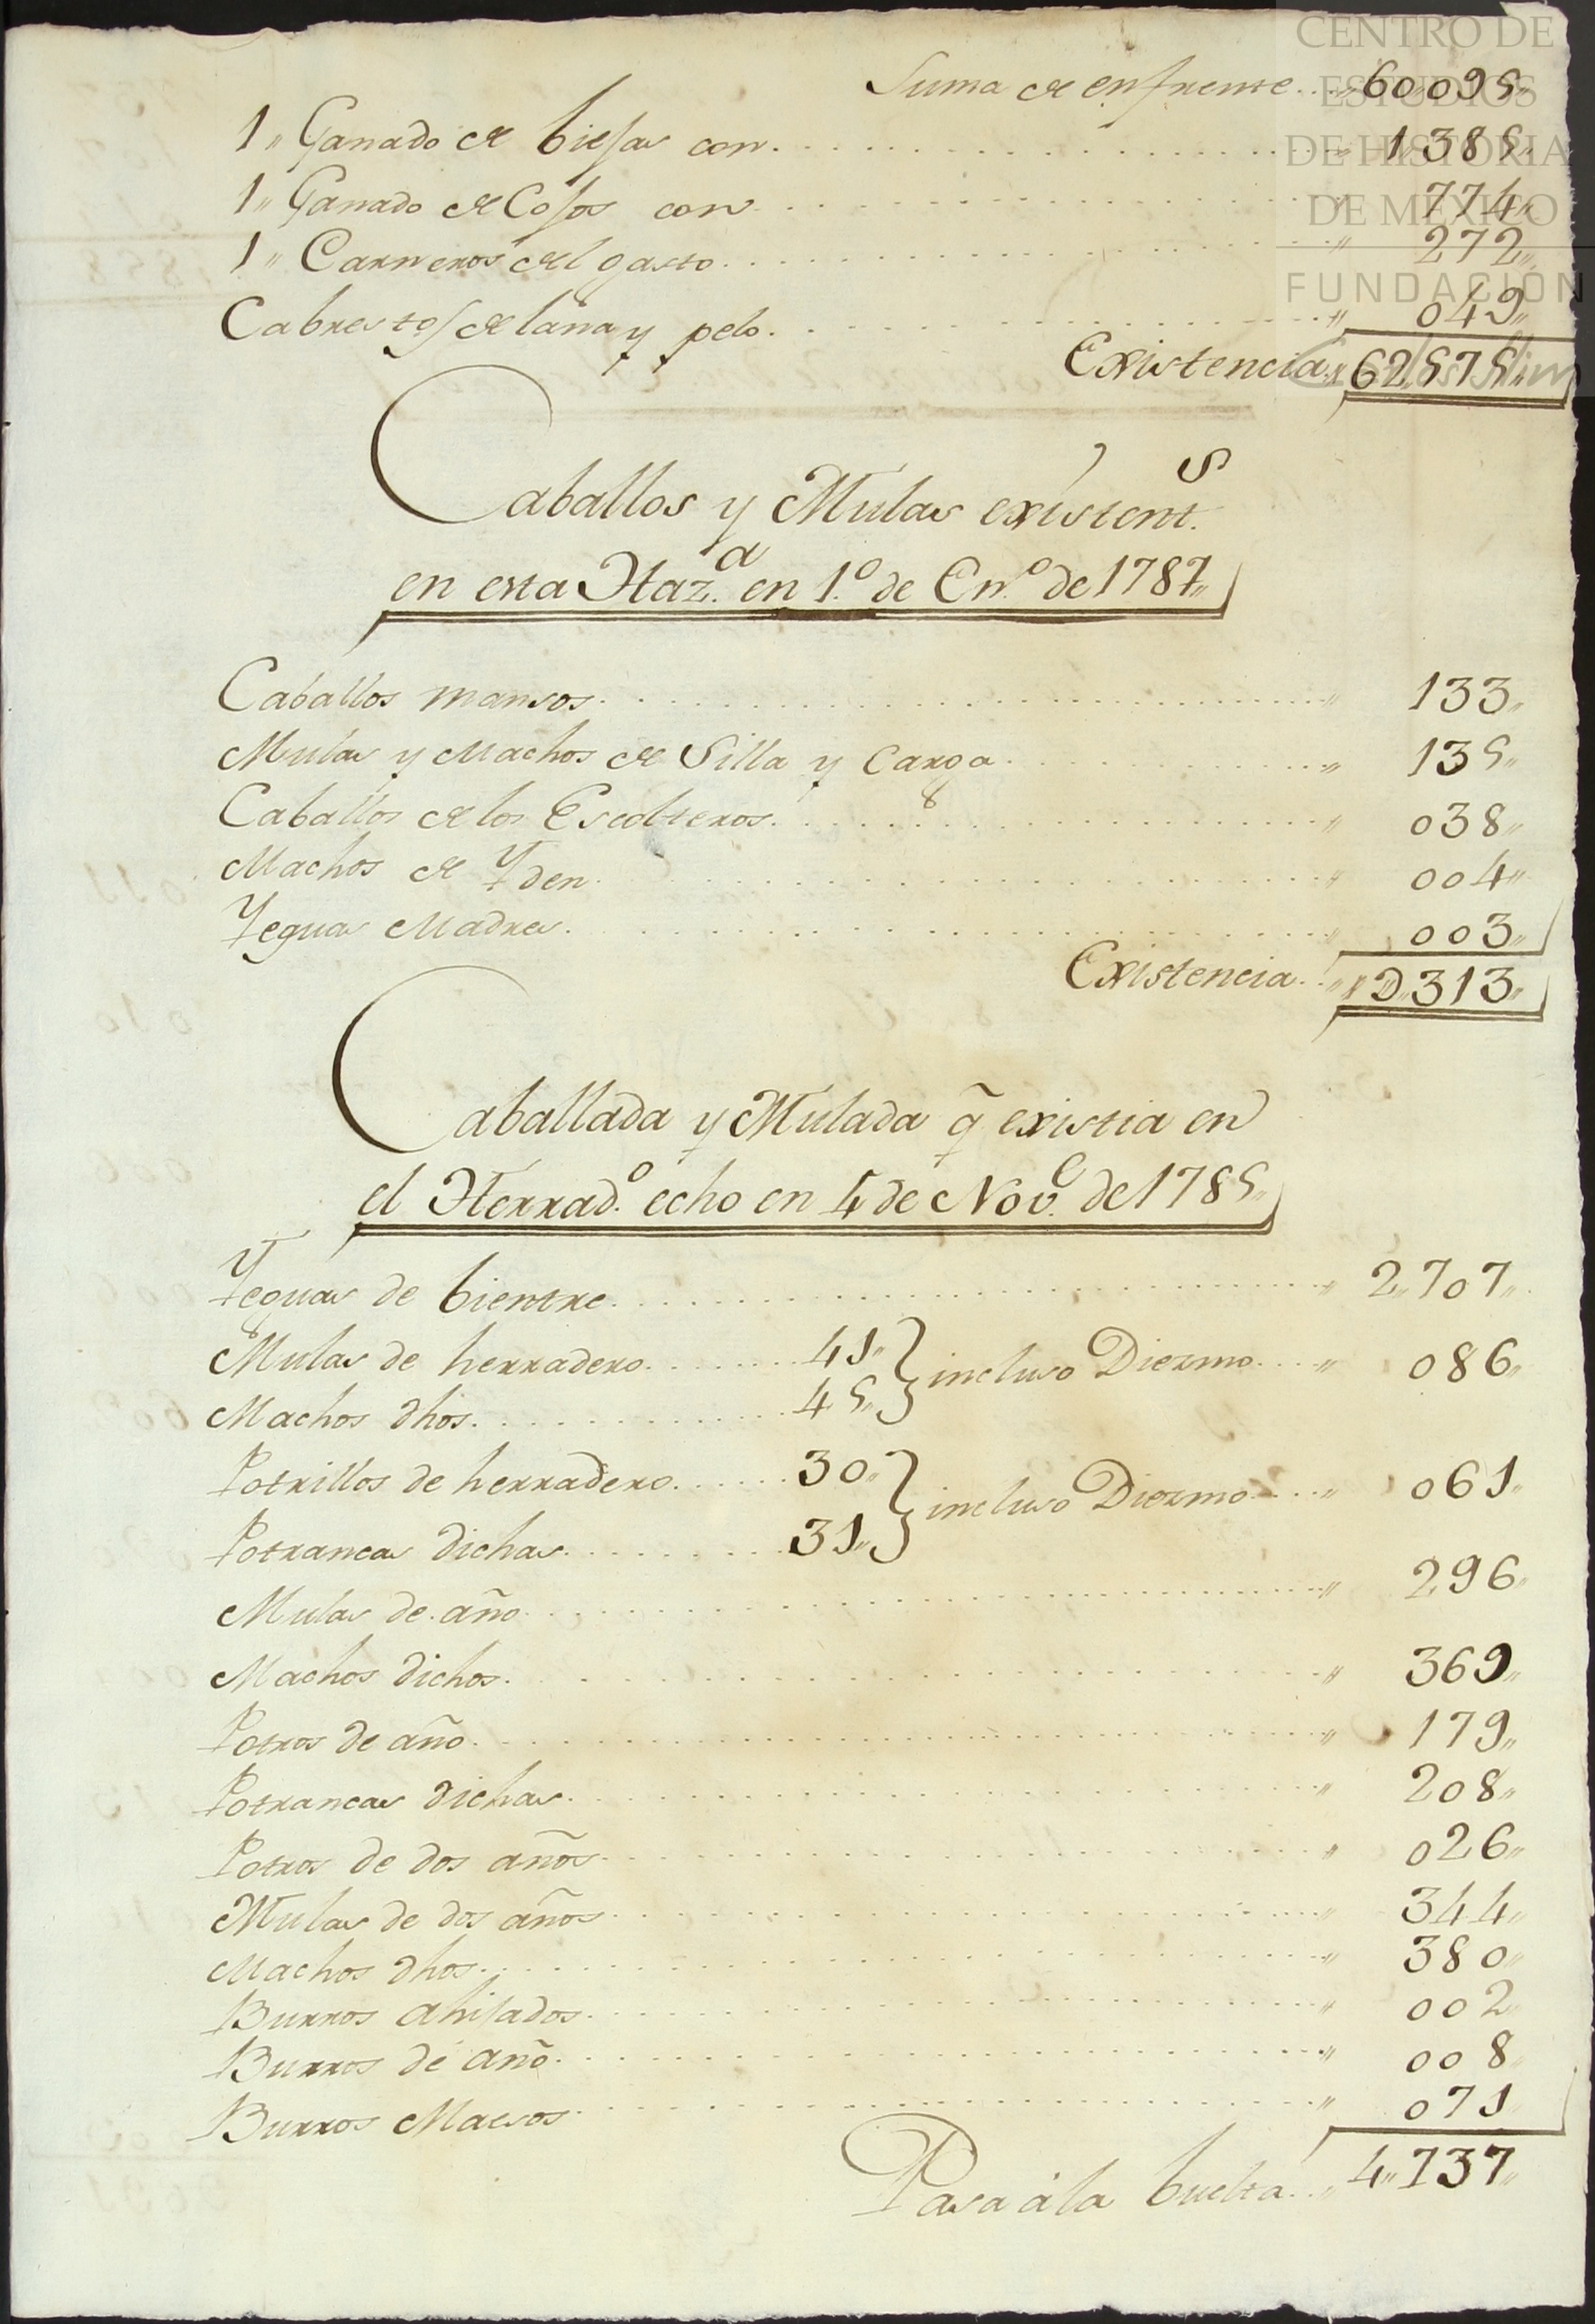 CENTRO DE
ESTUDIOS
DE HISTORIA
DE MÉXICO
FUNDACIÓN
Carlos Slim
Suma de enfrente 60"095"
1" Ganado de biejas con 1"385"
1" Ganado de Cojos con " 774"
1" Carneros del gasto " 272"
Cabrestos de lana y pelo " 049"
Existencia 62"575"
Caballos y Mulas existent.s
en esta Haz.a en 1.o de En.o de 1787"
Caballos mansos " 133"
Mulas y Machos de Silla y Carga " 135"
Caballos de los Escolteros " 038"
Machos de Yden " 004"
Yeguas Madres " 003"
Existencia " D"313"
Caballada y Mulada q̃ existia en
el Herrad.o echo en 4 de Nov.e de 1785"
Yeguas de bientre " 2"707"
Mulas de herradero 41" } incluso Diezmo " 086"
Machos dhos. 45"
Potrillos de herradero 30" } incluso Diezmo " 061"
Potrancas dichas 31"
Mulas de año " 296"
Machos dichos " 369"
Potros de año " 179"
Potrancas dichas " 208"
Potros de dos años " 026"
Mulas de dos años " 344"
Machos dhos " 380"
Burros ahijados " 002"
Burros de año " 008"
Burros Maesos " 071"
Pasa á la buelta " 4"737"